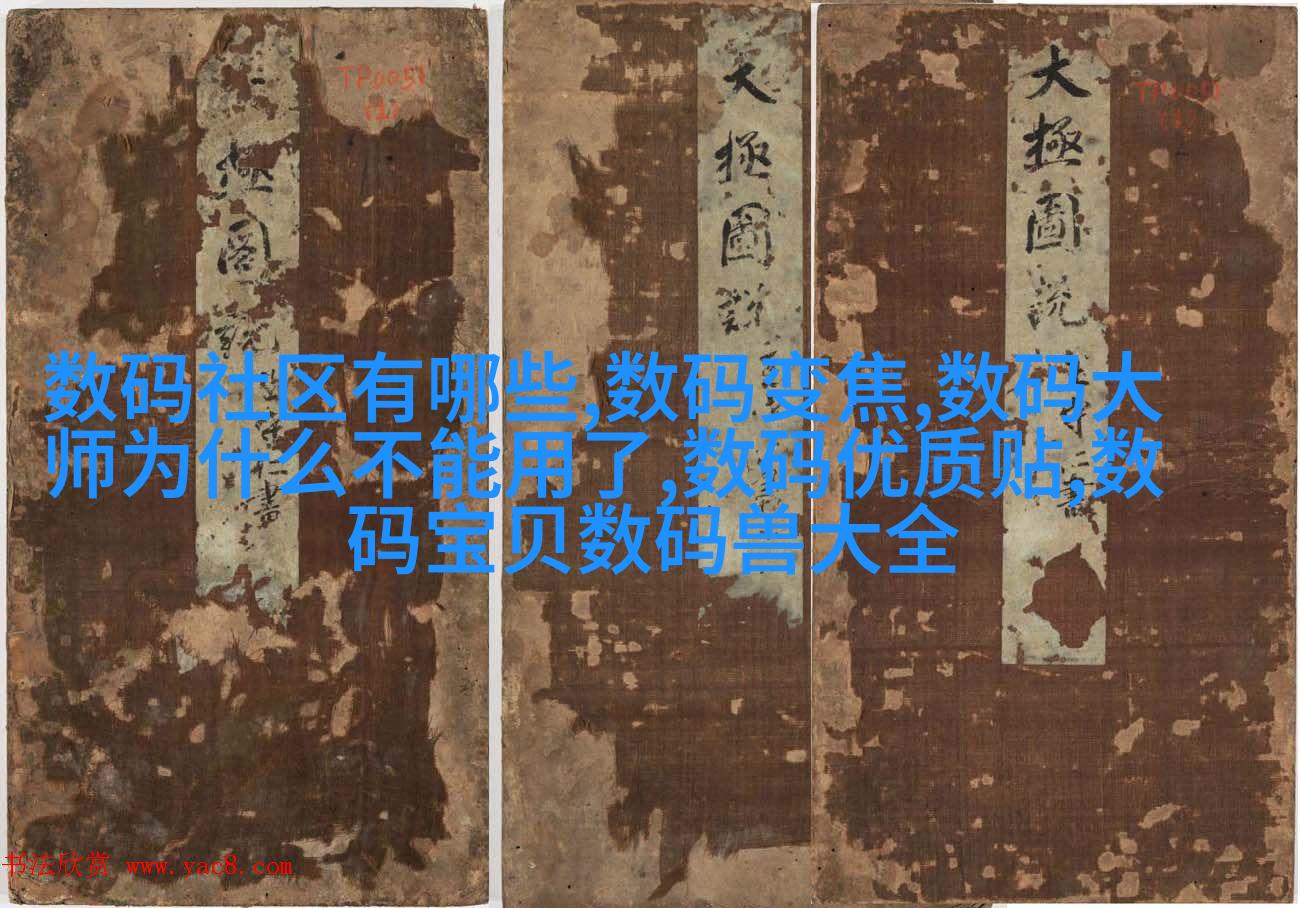 TP0051
(1)
極圖說
大極圖說
書
大極圖說
書
数码社区有哪些,数码变焦,数码大
师为什么不能用了,数码优质贴,数
码宝贝数码兽大全
书法欣赏 www.yac8.com